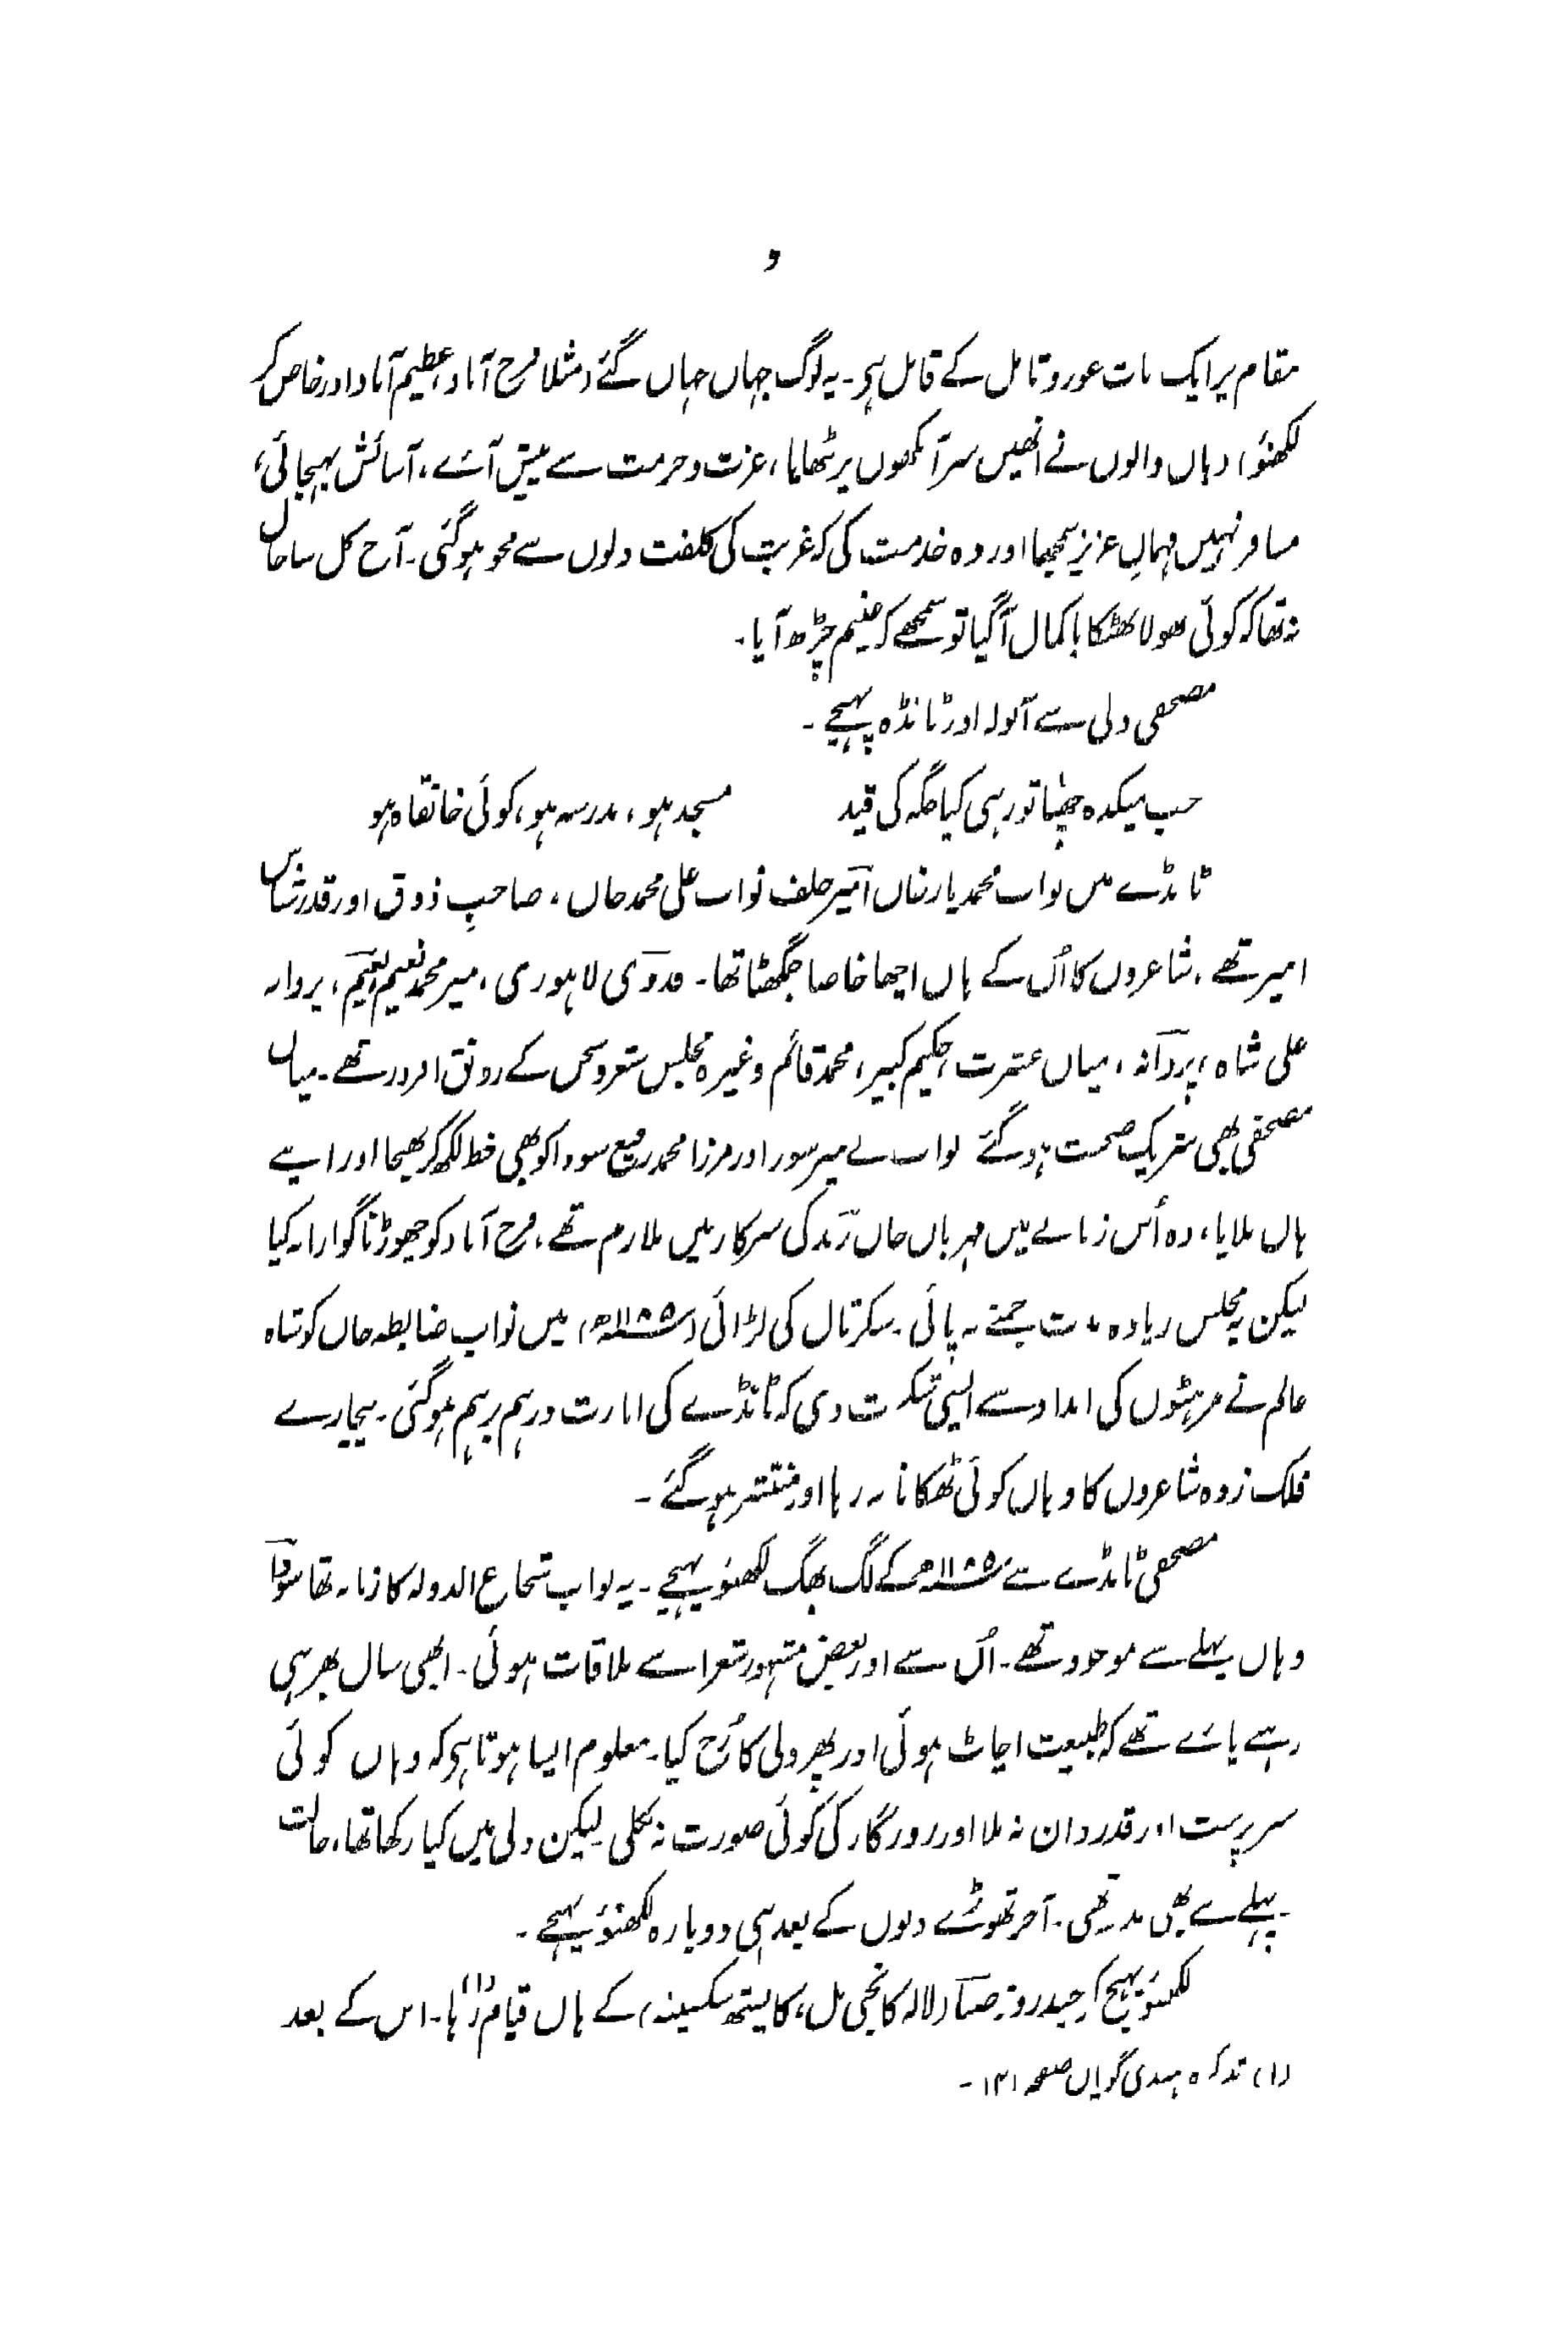 و
مقام پر ایک بات غور و تامل کے قابل ہی۔ یہ لوگ جہاں جہاں گئے (مثلاً فرخ آباد، عظیم آباد اور خاص کر
لکھنؤ) وہاں والوں نے انھیں سر آنکھوں پر بٹھایا، عزت و حرمت سے پیش آئے، آسائش پہنچائی،
مسافر نہیں مہمانِ عزیز سمجھا اور وہ خدمت کی کہ غربت کی کلفت دلوں سے محو ہوگئی۔ آج کل سا حال
نہ تھا کہ کوئی بھولا بھٹکا باکمال آگیا تو سمجھے کہ غنیم چڑھ آیا۔
مصحفی دلی سے آنولہ اور ٹانڈہ پہنچے۔
جب میکدہ چھٹا تو رہی کیا جگہ کی قید مسجد ہو، مدرسہ ہو، کوئی خانقاہ ہو
ٹانڈے میں نواب محمد یار خاں امیر خلف نواب علی محمد خاں، صاحبِ ذوق اور قدرشناس
امیر تھے، شاعروں کا اُن کے ہاں اچھا خاصا جمگھٹا تھا۔ فدوی لاہوری، میر محمد نعیم نعیم، پروانہ
علی شاہ، پروانہ، میاں عشرت، حکیم کبیر، محمد قائم وغیرہ مجلس شعر و سخن کے رونق افروز تھے۔ میاں
مصحفی بھی شریک صحبت ہوگئے نواب نے میر سوز اور مرزا محمد رفیع سودا کو بھی خط لکھ کر بھیجا اور اپنے
ہاں بلایا، وہ اُس زمانے میں مہربان خاں رند کی سرکار میں ملازم تھے، فرخ آباد کو چھوڑنا گوارا نہ کیا
لیکن یہ مجلس زیادہ مدت جمنے نہ پائی۔ سکرتال کی لڑائی (۱۱۸۵ھ) میں نواب ضابطہ خاں کو شاہ
عالم نے مرہٹوں کی امداد سے ایسی شکست دی کہ ٹانڈے کی امارت درہم برہم ہوگئی۔ بیچارے
فلک زدہ شاعروں کا وہاں کوئی ٹھکانا نہ رہا اور منتشر ہوگئے۔
مصحفی ٹانڈے سے ۱۱۸۵ھ کے لگ بھگ لکھنؤ پہنچے۔ یہ نواب شجاع الدولہ کا زمانہ تھا سودا
وہاں پہلے سے موجود تھے۔ اُن سے اور بعض مشہور شعرا سے ملاقات ہوئی۔ ابھی سال بھر ہی
رہنے پائے تھے کہ طبیعت اچاٹ ہوئی اور پھر دلی کا رُخ کیا۔ معلوم ایسا ہوتا ہی کہ وہاں کوئی
سرپرست اور قدردان نہ ملا اور روزگار کی کوئی صورت نہ نکلی لیکن دلی میں کیا رکھا تھا، حالت
پہلے سے بھی بدتر تھی۔ آخر تھوڑے دنوں کے بعد ہی دوبارہ لکھنؤ پہنچے۔
لکھنؤ پہنچ کر چند روز صبا (لالہ کانجی مل، کایستھ سکسینہ) کے ہاں قیام رہا(۱)۔ اس کے بعد
(۱) تذکرہ ہندی گویاں صفحہ ۱۳۱۔